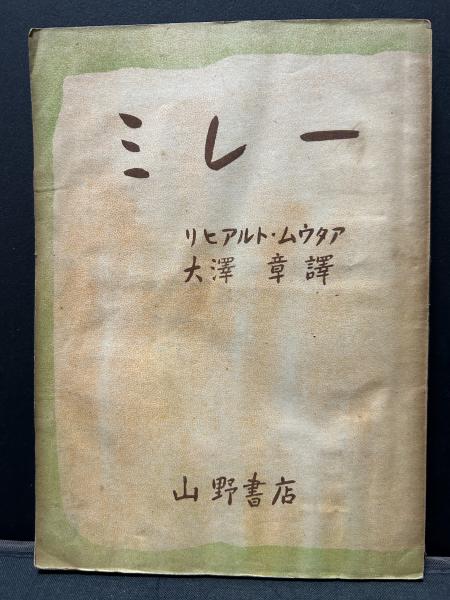 ミレー
リヒアルト・ムウタア
大澤 章 譯
山野書店